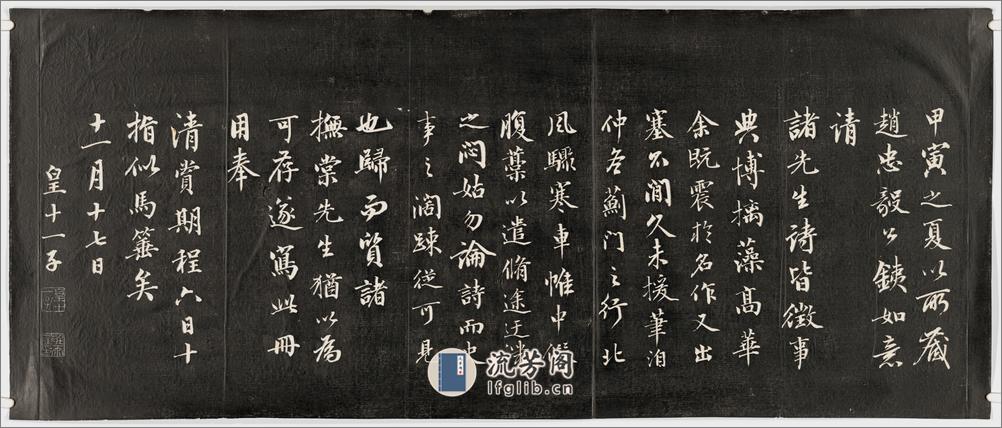 甲寅之夏以所藏
趙忠毅公鐵如意
请
諸先生詩皆徵事
典博摛藻高華
余既震於名作又出
塞不閒久未援筆洎
仲冬薊門之行北
風驟寒車帷中
腹藁以遣脩途迂
之悶姑勿論詩而史
事之闊踈從可見
也歸而質諸
撫棠先生猶以為
可存遂寫此冊
用奉
清賞期程六日十
指似馬箠矣
十一月十七日
皇十一子
流芳阁
lfglib.cn